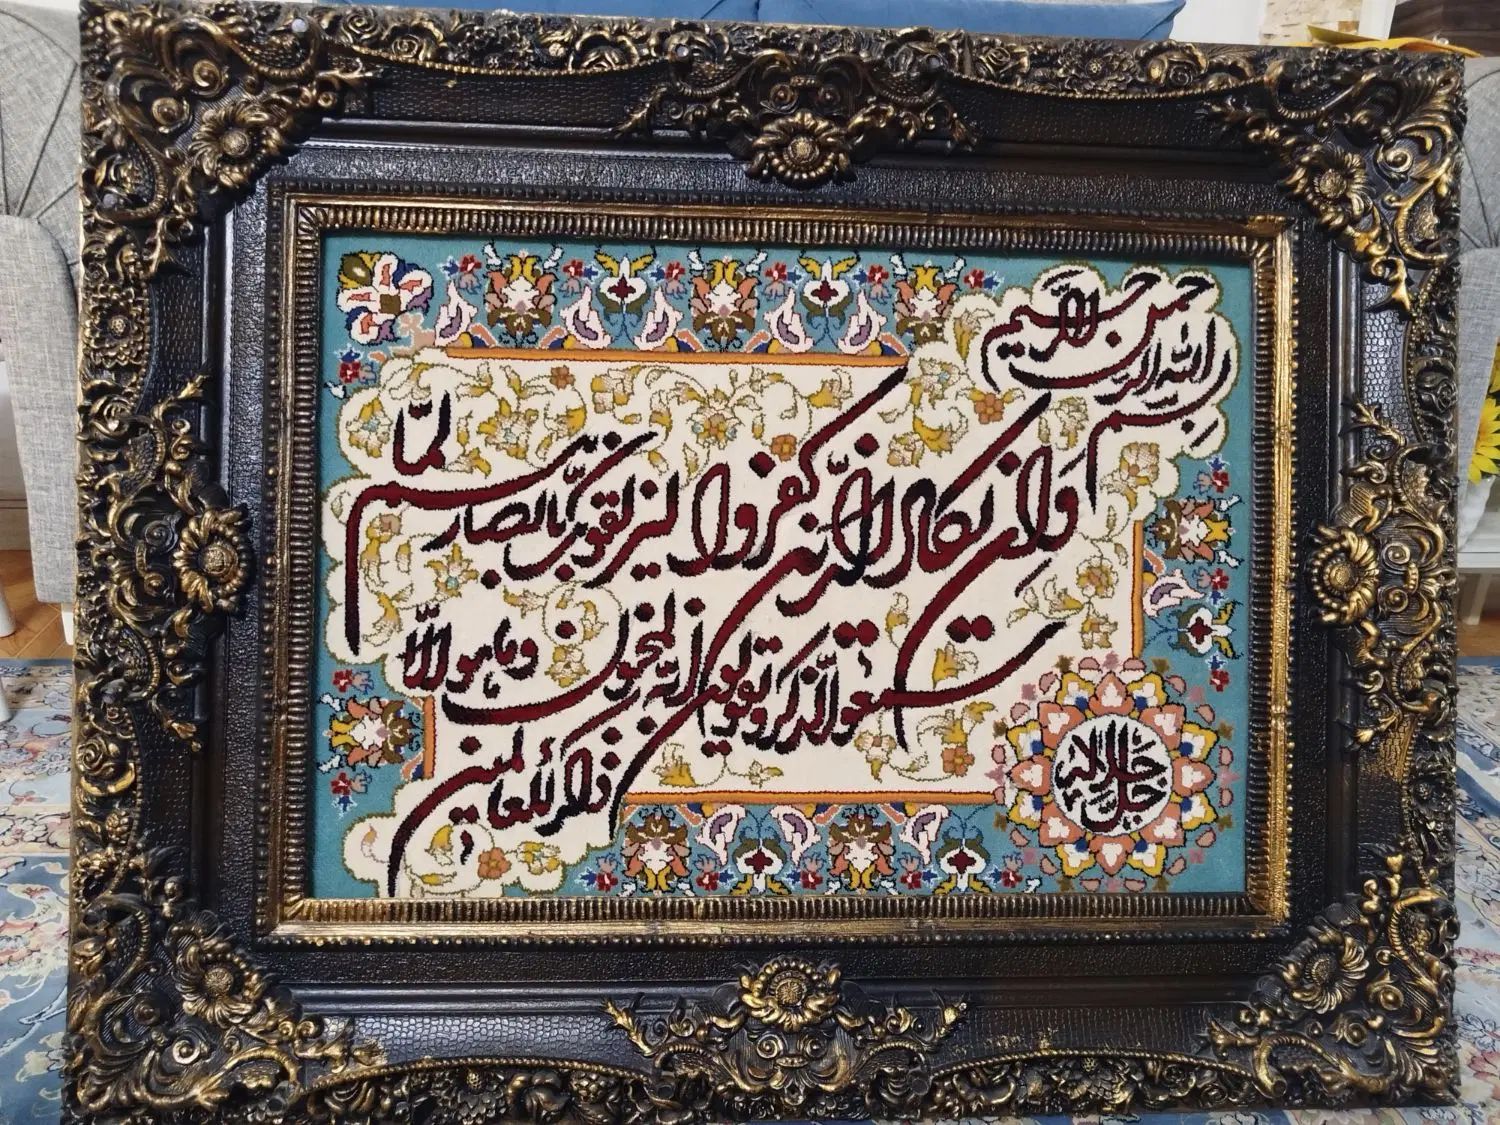 بسم الله الرحمن الرحیم
وَاِن یکاد الَّذین کفروا لیزلقونکَ بابصارهم لمّا
سمعوالذّکرَ و یقولون اِنّه لمجنون و ما هو الّا
ذکرٌ للعالمین
جل جلاله